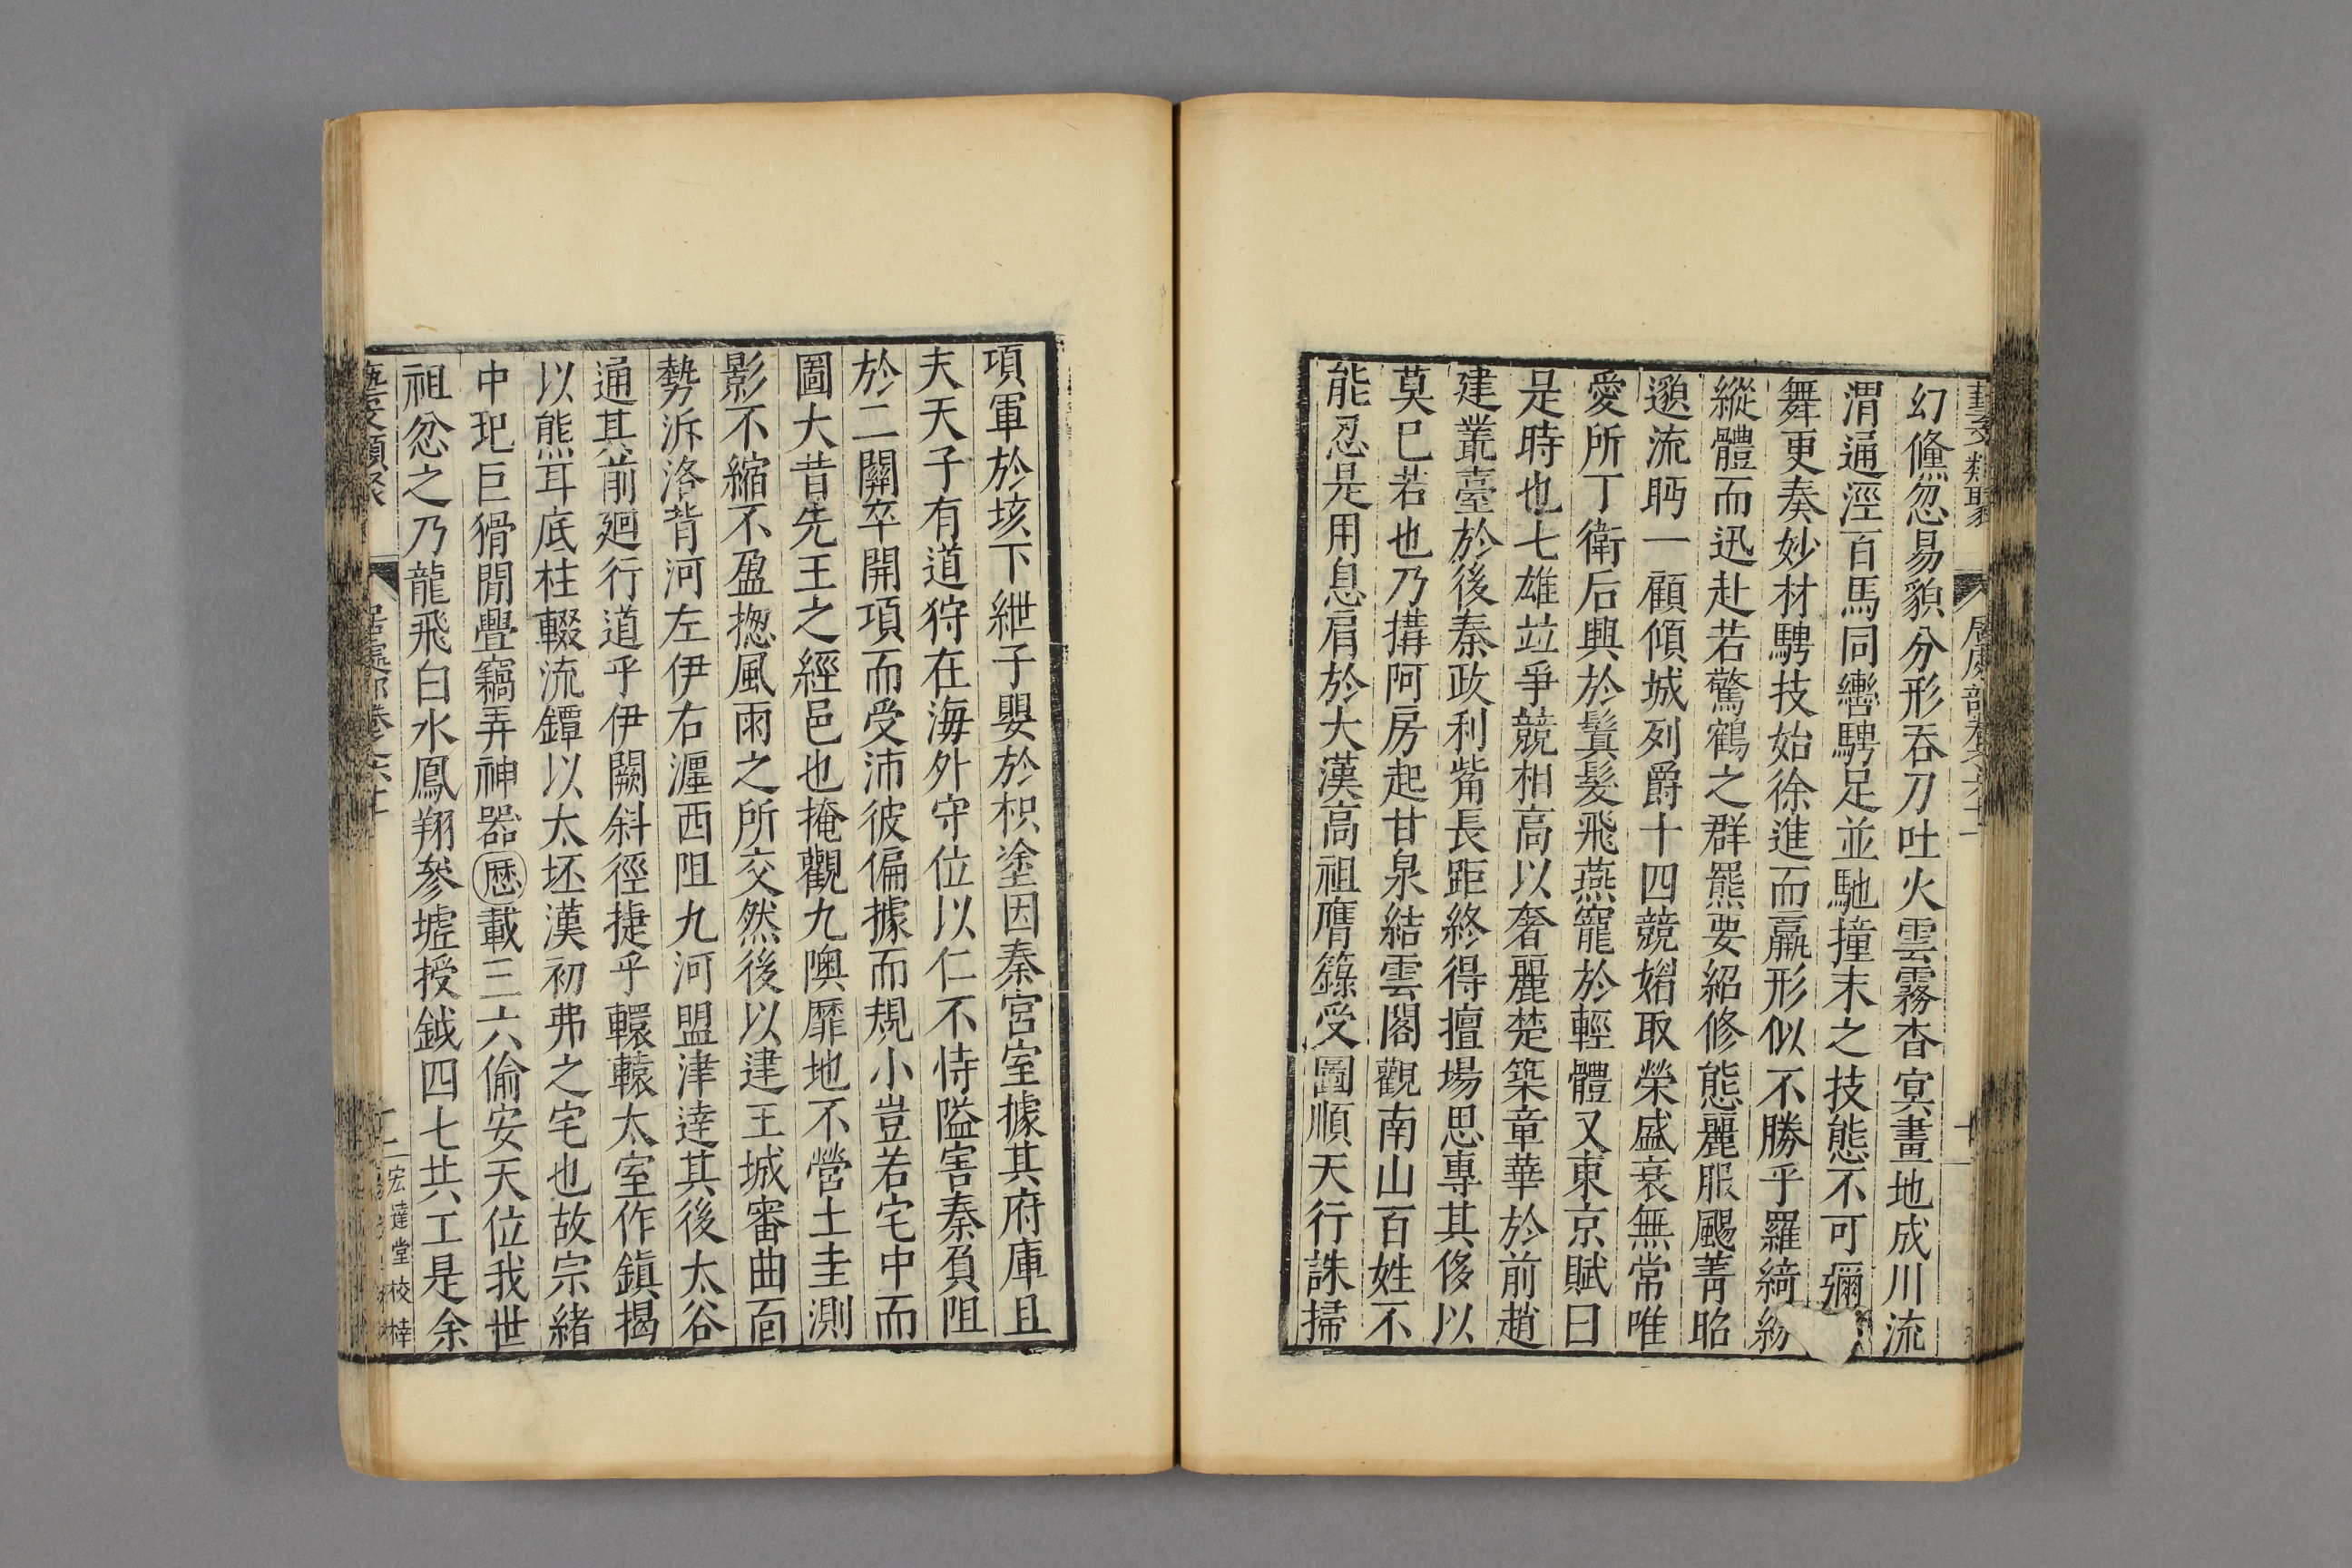 藝文類聚 居處部卷六十一
幻儵忽易貌分形吞刀吐火雲霧杳冥畫地成川流
渭通涇百馬同轡騁足並馳撞末之技態不可彌
舞更奏妙材騁技始徐進而羸形似不勝乎羅綺紛
縱體而迅赴若驚鶴之群羆要紹修態麗服颺菁昭
邈流眄一顧傾城列爵十四競媚取榮盛衰無常唯
愛所丁衛后興於鬒髮飛燕寵於輕體又東京賦曰
是時也七雄竝爭競相高以奢麗楚築章華於前趙
建叢臺於後秦政利觜長距終得擅場思專其侈以
莫已若也乃搆阿房起甘泉結雲閣觀南山百姓不
能忍是用息肩於大漢高祖膺籙受圖順天行誅掃
項軍於垓下紲子嬰於枳塗因秦宮室據其府庫且
夫天子有道狩在海外守位以仁不恃隘害秦負阻
於二關卒開項而受沛彼偏據而規小豈若宅中而
圖大昔先王之經邑也掩觀九隩靡地不營土圭測
影不縮不盈揔風雨之所交然後以建王城審曲面
勢泝洛背河左伊右瀍西阻九河盟津達其後太谷
通其前廻行道乎伊闕斜徑捷乎轘轅太室作鎮揭
以熊耳底柱輟流鐔以太坯漢初弗之宅也故宗緒
中圯巨猾閒舋竊弄神器歷載三六偷安天位我世
祖忿之乃龍飛白水鳳翔參墟授鉞四七共工是余
藝文類聚 居處部卷六十一 十一 宏達堂校梓